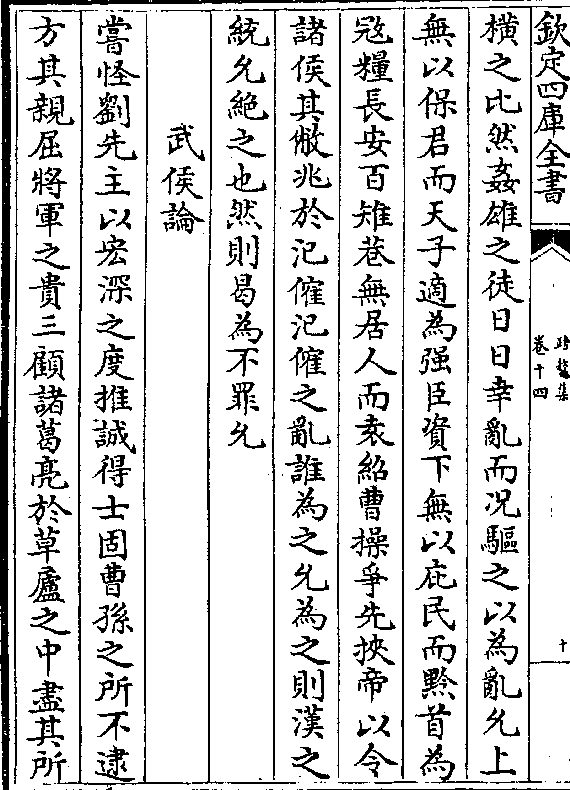 欽定四庫全書
跨鼇集
卷十四
十
橫之比然姦雄之徒日日幸亂而况驅之以為亂允上
無以保君而天子適為强臣資下無以庇民而黔首為
冦糧長安百雉巷無居人而袁紹曹操爭先挾帝以令
諸侯其敝兆於汜傕汜傕之亂誰為之允為之則漢之
統允絶之也然則曷為不罪允
武侯論
嘗怪劉先主以宏深之度推誠得士固曹孫之所不逮
方其親屈將軍之貴三顧諸葛亮於草廬之中盡其所